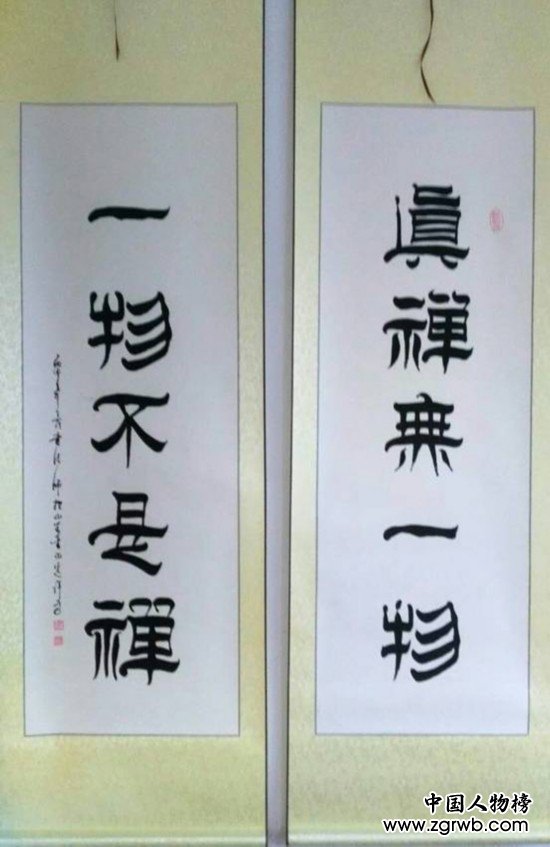 眞禪無一物
一物不是禪
中国人物榜
www.zgrwb.com